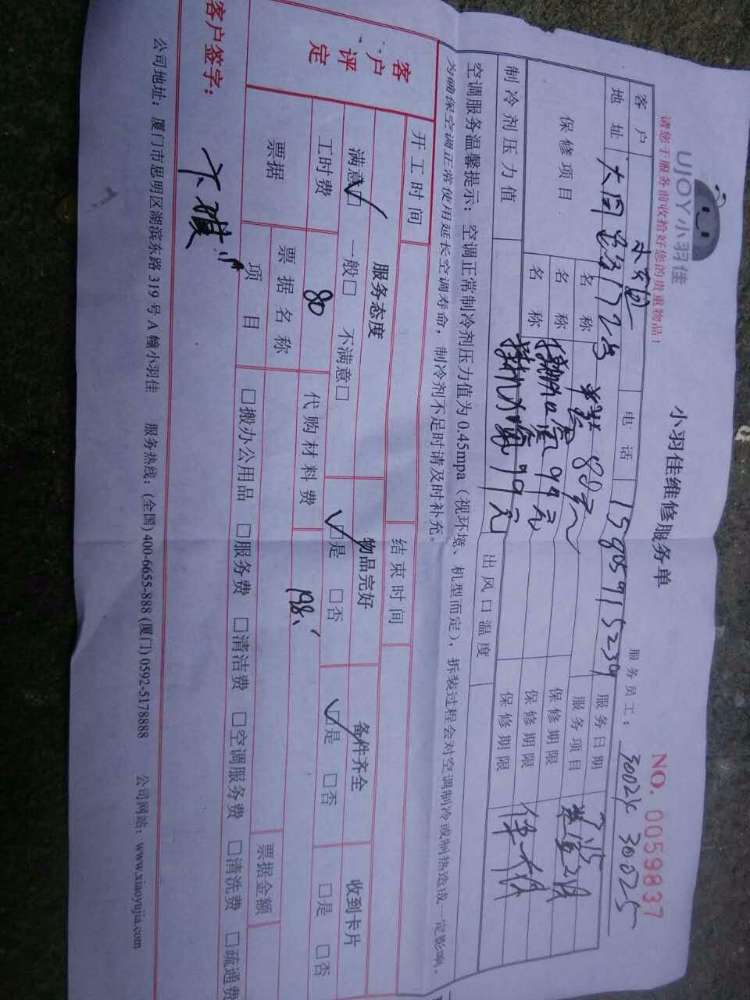 UJOY小羽佳
小羽佳维修服务单
NO. 0059837
请您于服务前收拾好您的贵重物品！
服务员工：30024 30025
客户 电话 服务日期
地址 服务项目
保修项目 名称 80元 保修期限
名称 99元 保修期限
名称 99元 保修期限
制冷剂压力值 出风口温度
空调服务温馨提示：空调正常制冷剂压力值为0.45mpa（视环境、机型而定），拆装过程会对空调制冷或制热造成一定影响，
为确保空调正常使用延长空调寿命，制冷剂不足时请及时补充。
开工时间 结束时间
客户评定 服务态度 物品完好 备件齐全 收到卡片
满意□ 一般□ 不满意□ □是 □否 □是 □否 □是 □否
工时费 80 代购材料费 198
票据 票据名称 票据金额
项目 □搬办公用品 □服务费 □清洁费 □空调服务费 □清洗费 □疏通费
客户签字：
公司地址：厦门市思明区湖滨东路319号A幢小羽佳 服务热线：(全国)400-6655-888 (厦门)0592-5178888 公司网站：www.xiaoyujia.com